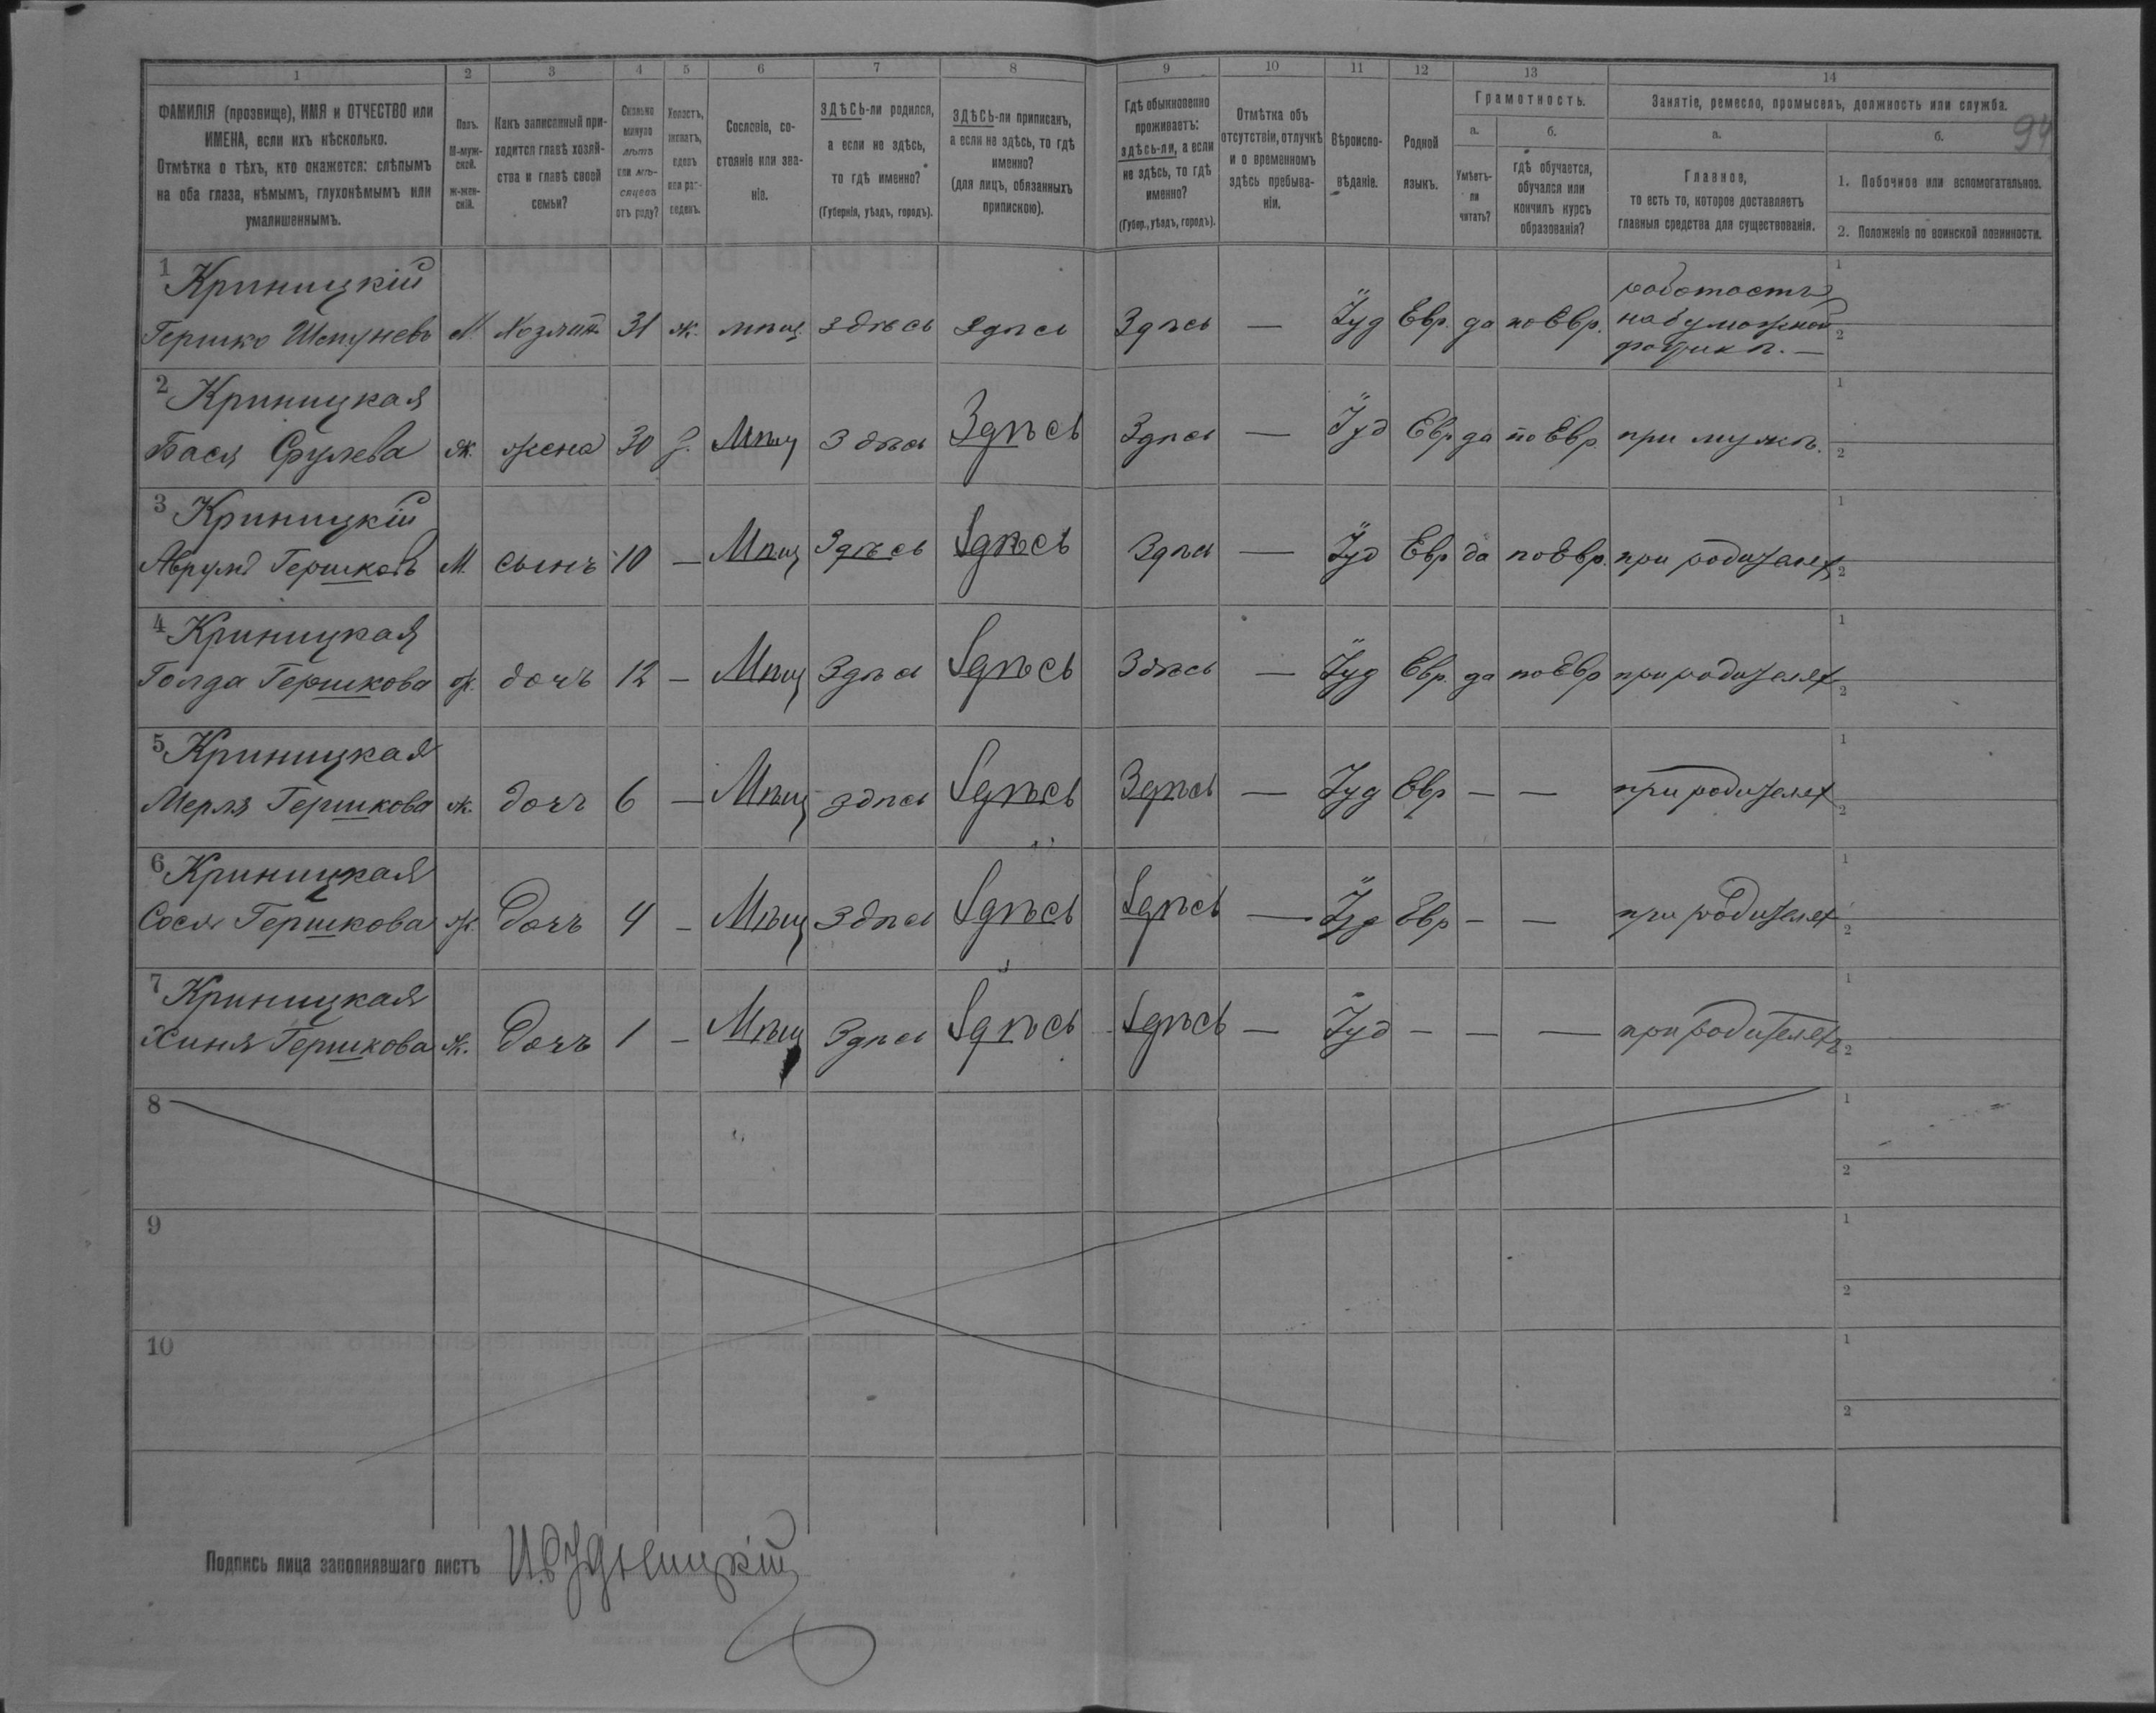 1 2 3 4 5 6 7 8 9 10 11 12 13 14
ФАМИЛІЯ (прозвище), ИМЯ и ОТЧЕСТВО или
ИМЕНА, если ихъ нѣсколько.
Отмѣтка о тѣхъ, кто окажется: слѣпымъ
на оба глаза, нѣмымъ, глухонѣмымъ или
умалишеннымъ.
Полъ.
М-муж-
ской.
Ж-жен-
скій.
Какъ записанный при-
ходится главѣ хозяй-
ства и главѣ своей
семьи?
Сколько
минуло
лѣтъ
или мѣ-
сяцевъ
отъ роду?
Холостъ,
женатъ,
вдовъ
или раз-
веденъ.
Сословіе, со-
стояніе или зва-
ніе.
ЗДѢСЬ-ли родился,
а если не здѣсь,
то гдѣ именно?
(Губернія, уѣздъ, городъ).
ЗДѢСЬ-ли приписанъ,
а если не здѣсь, то гдѣ
именно?
(для лицъ, обязанныхъ
припискою).
Гдѣ обыкновенно
проживаетъ:
здѣсь-ли, а если
не здѣсь, то гдѣ
именно?
(Губер., уѣздъ, городъ).
Отмѣтка объ
отсутствіи, отлучкѣ
и о временномъ
здѣсь пребыва-
ніи.
Вѣроиспо-
вѣданіе.
Родной
языкъ.
Грамотность.
а.
Умѣетъ-
ли
читать?
б.
гдѣ обучается,
обучался или
кончилъ курсъ
образованія?
Занятіе, ремесло, промыселъ, должность или служба.
94
а.
Главное,
то есть то, которое доставляетъ
главныя средства для существованія.
б.
1. Побочное или вспомогательное.
2. Положеніе по воинской повинности.
1 Криницкій
Гершко М. Хозяинъ 31 ж. мѣщ. здѣсь здѣсь Здѣсь — Іуд Евр. да по Евр.
на бумажной
фабрикѣ. —
1
2
2 Криницкая
Бася Срулева ж. жена 30 З. Мѣщ Здѣсь Здѣсь Здѣсь — Іуд Евр да по Евр. при мужѣ.
1
2
3 Криницкій
Аврумъ Гершковъ М. сынъ 10 — Мѣщ Здѣсь Здѣсь Здѣсь — Іуд Евр да по Евр. при родителях
1
2
4 Криницкая
Голда Гершкова ж. дочь 12 — Мѣщ Здѣсь Здѣсь Здѣсь — Іуд Евр. да по Евр при родителях
1
2
5 Криницкая
Мерля Гершкова ж. дочь 6 — Мѣщ здѣсь Здѣсь Здѣсь — Іуд Евр — — при родителях
1
2
6 Криницкая
Сося Гершкова ж. Дочь 4 — Мѣщ Здѣсь Здѣсь Здѣсь — Іуд Евр — — при родителях
1
2
7 Криницкая
Хиня Гершкова ж. Дочь 1 — Мѣщ Здѣсь Здѣсь Здѣсь — Іуд — — — при родителяхъ
1
2
8
1
2
9
1
2
10
1
2
Подпись лица заполнявшаго листъ